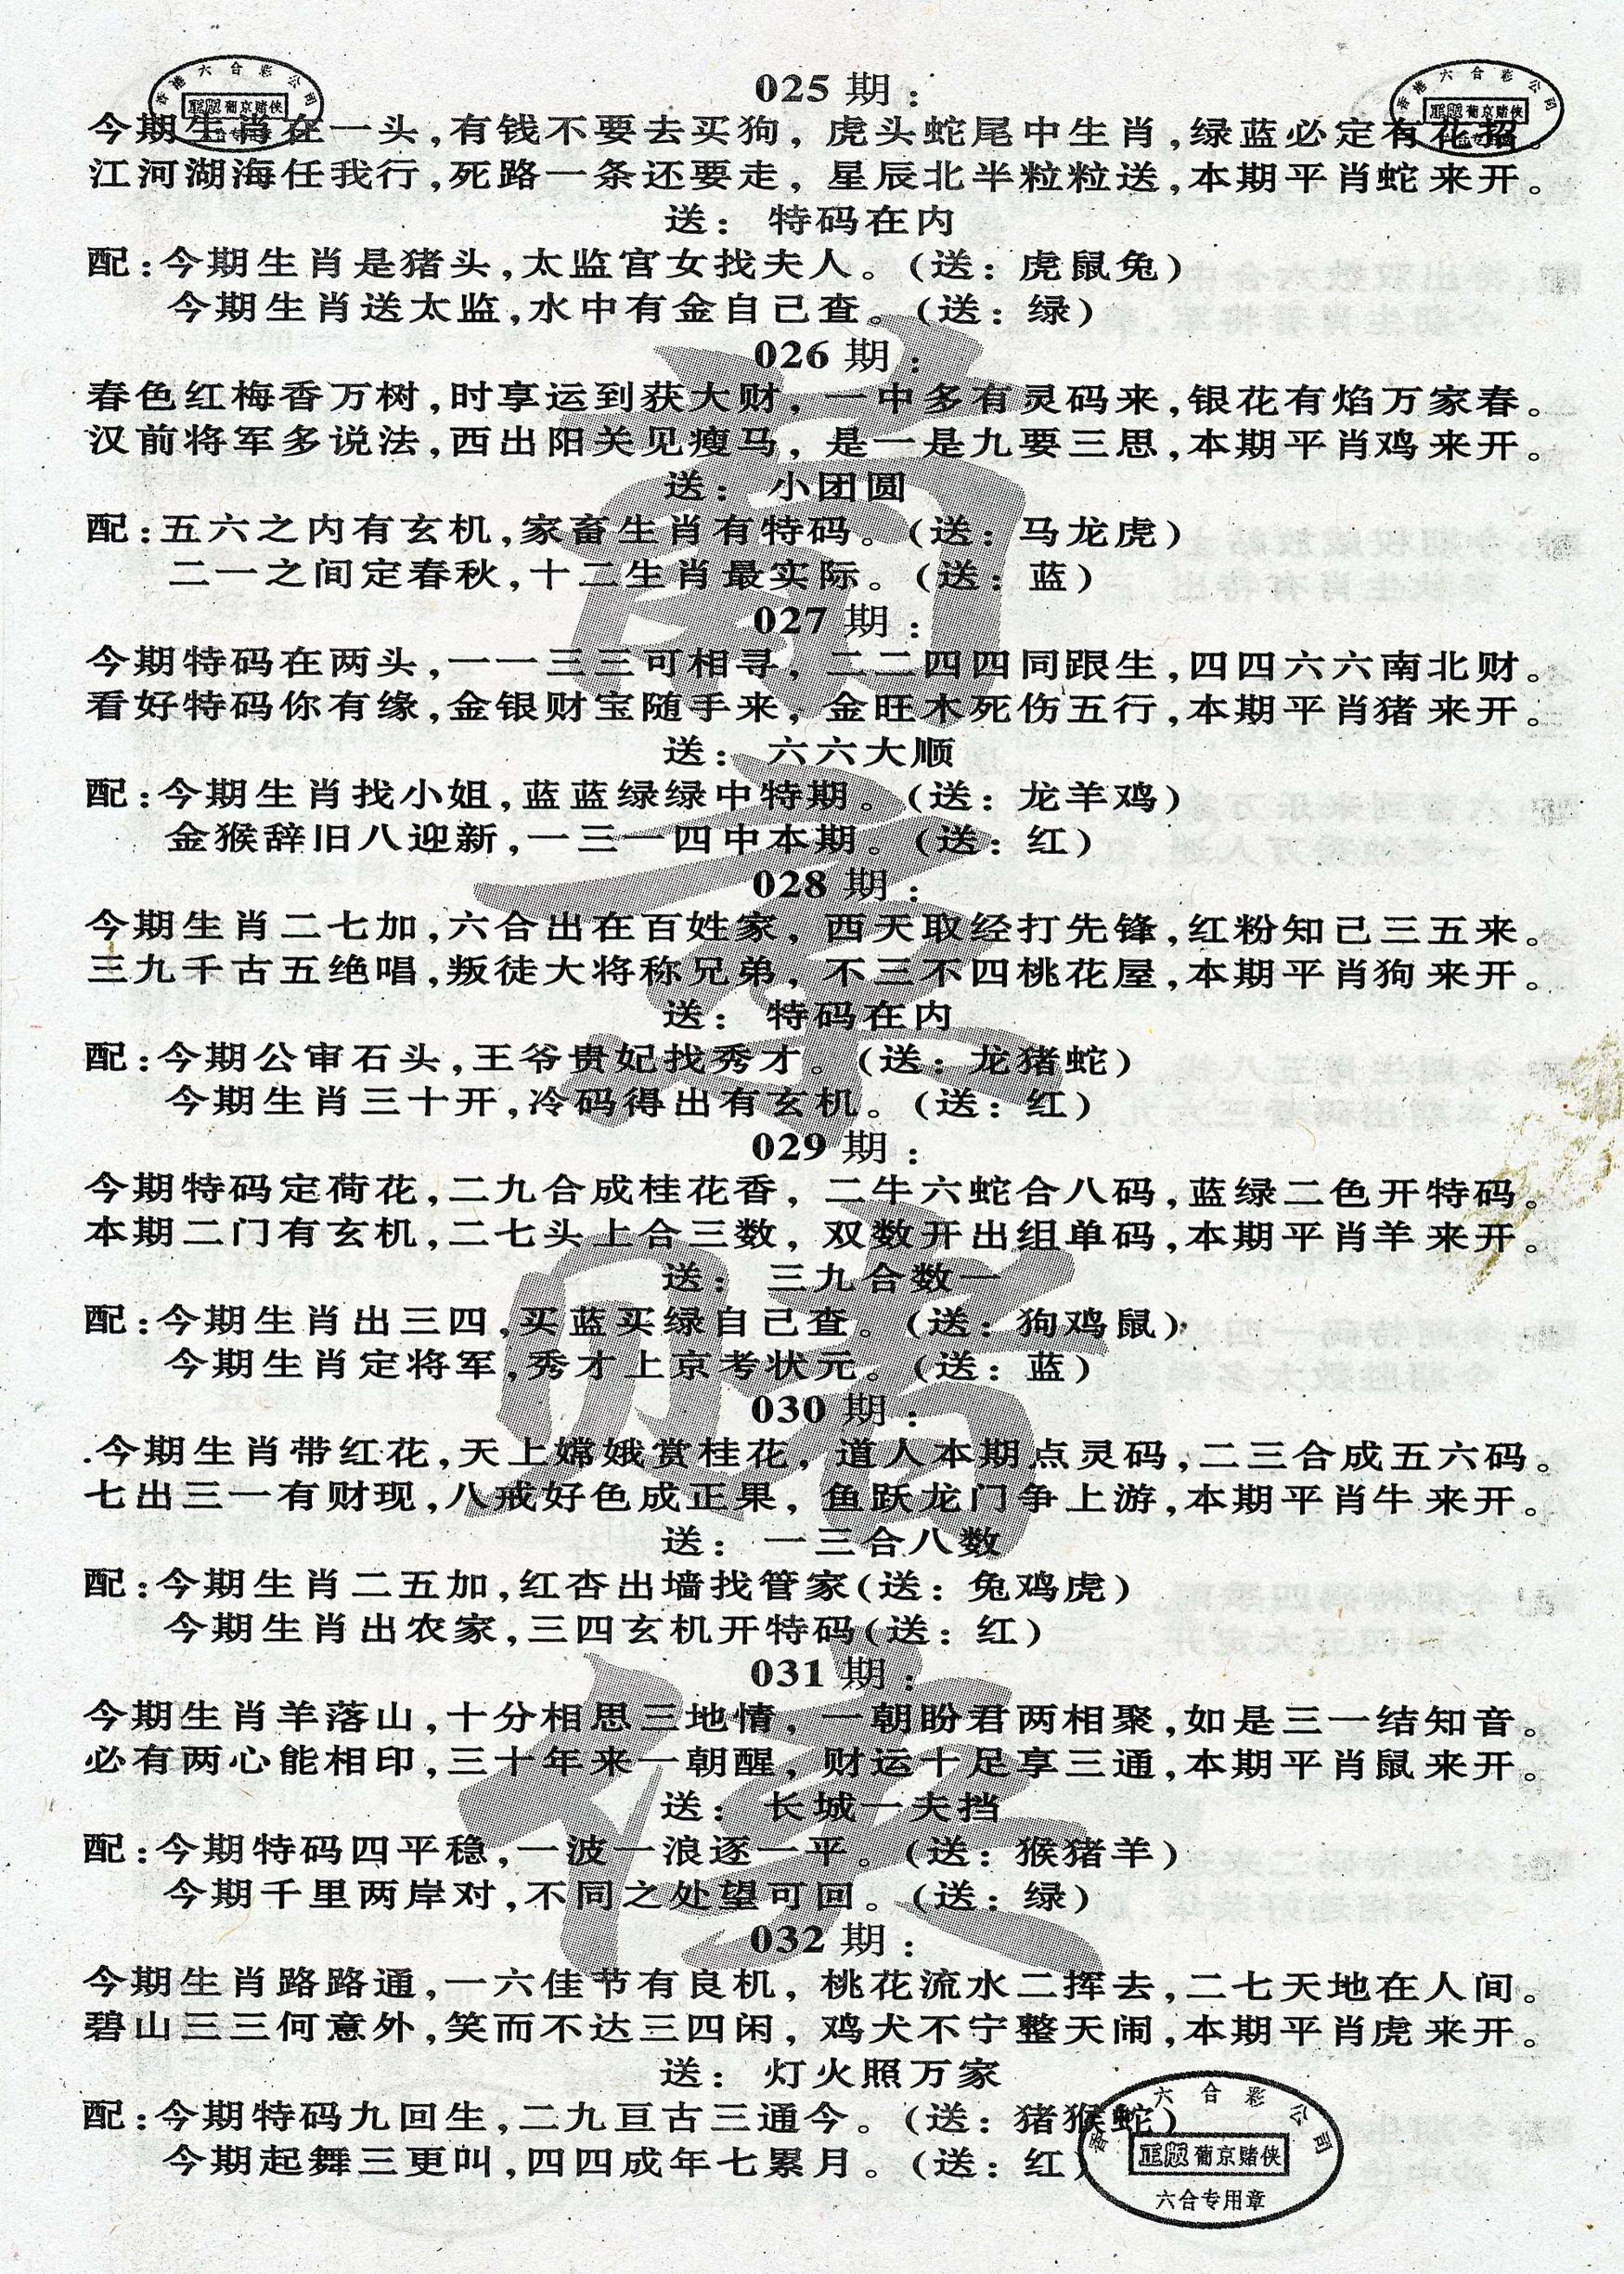 香港六合彩公司
正版 葡京赌侠
六合专用章
香港六合彩公司
正版 葡京赌侠
六合专用章
025 期：
今期生肖在一头,有钱不要去买狗, 虎头蛇尾中生肖,绿蓝必定有花招。
江河湖海任我行,死路一条还要走, 星辰北半粒粒送,本期平肖蛇来开。
送: 特码在内
配:今期生肖是猪头,太监宫女找夫人。(送: 虎鼠兔)
今期生肖送太监,水中有金自己查。(送: 绿)
026 期：
春色红梅香万树,时享运到获大财, 一中多有灵码来,银花有焰万家春。
汉前将军多说法,西出阳关见瘦马, 是一是九要三思,本期平肖鸡来开。
送: 小团圆
配:五六之内有玄机,家畜生肖有特码。(送: 马龙虎)
二一之间定春秋,十二生肖最实际。(送: 蓝)
027 期：
今期特码在两头,一一三三可相寻, 二二四四同跟生,四四六六南北财。
看好特码你有缘,金银财宝随手来, 金旺木死伤五行,本期平肖猪来开。
送: 六六大顺
配:今期生肖找小姐,蓝蓝绿绿中特期。(送: 龙羊鸡)
金猴辞旧八迎新,一三一四中本期。(送: 红)
028 期：
今期生肖二七加,六合出在百姓家, 西天取经打先锋,红粉知己三五来。
三九千古五绝唱,叛徒大将称兄弟, 不三不四桃花屋,本期平肖狗来开。
送: 特码在内
配:今期公审石头,王爷贵妃找秀才。(送: 龙猪蛇)
今期生肖三十开,冷码得出有玄机。(送: 红)
029 期：
今期特码定荷花,二九合成桂花香, 二牛六蛇合八码,蓝绿二色开特码。
本期二门有玄机,二七头上合三数, 双数开出组单码,本期平肖羊来开。
送: 三九合数一
配:今期生肖出三四,买蓝买绿自己查。(送: 狗鸡鼠)
今期生肖定将军,秀才上京考状元。(送: 蓝)
030 期：
.今期生肖带红花,天上嫦娥赏桂花, 道人本期点灵码,二三合成五六码。
七出三一有财现,八戒好色成正果, 鱼跃龙门争上游,本期平肖牛来开。
送: 一三合八数
配:今期生肖二五加,红杏出墙找管家(送: 兔鸡虎)
今期生肖出农家,三四玄机开特码(送: 红)
031 期：
今期生肖羊落山,十分相思三地情, 一朝盼君两相聚,如是三一结知音。
必有两心能相印,三十年来一朝醒, 财运十足享三通,本期平肖鼠来开。
送: 长城一夫挡
配:今期特码四平稳,一波一浪逐一平。(送: 猴猪羊)
今期千里两岸对,不同之处望可回。(送: 绿)
032 期：
今期生肖路路通,一六佳节有良机, 桃花流水二挥去,二七天地在人间。
碧山三三何意外,笑而不达三四闲, 鸡犬不宁整天闹,本期平肖虎来开。
送: 灯火照万家
配:今期特码九回生,二九亘古三通今。(送: 猪猴蛇)
今期起舞三更叫,四四成年七累月。(送: 红)
香港六合彩公司
正版 葡京赌侠
六合专用章
葡京赌侠